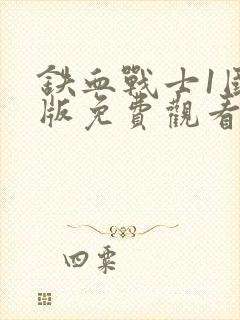 鉄血戰士1国
版免費觀看
四粟